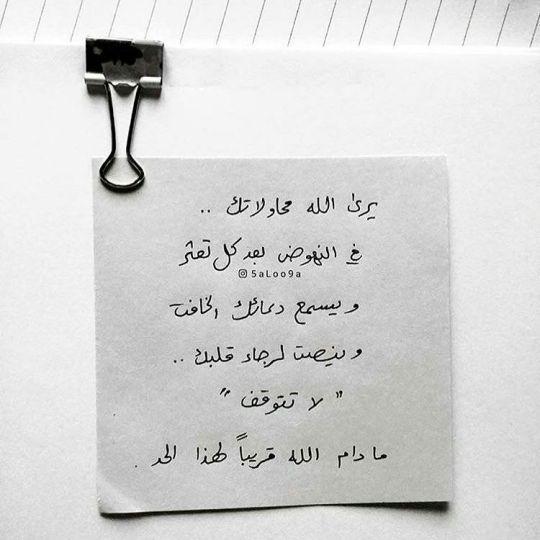 يرى الله محاولاتك ..
في النهوض بعد كل تعثر
5aLoo9a
ويسمع دعائك الخافت
وينصت لرجاء قلبك ..
" لا تتوقف "
مادام الله قريباً لهذا الحد .